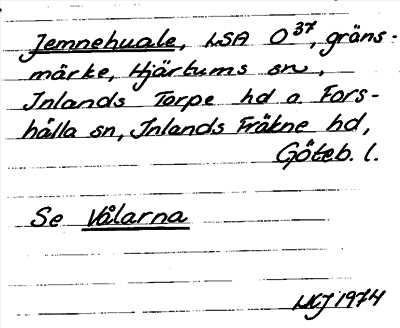 Jemnehuale, LSA O³⁷, gräns-
märke, Hjärtums sn,
Inlands Torpe hd o. Fors-
hälla sn, Inlands Fräkne hd,
Göteb. l.
Se Vålarna
1974